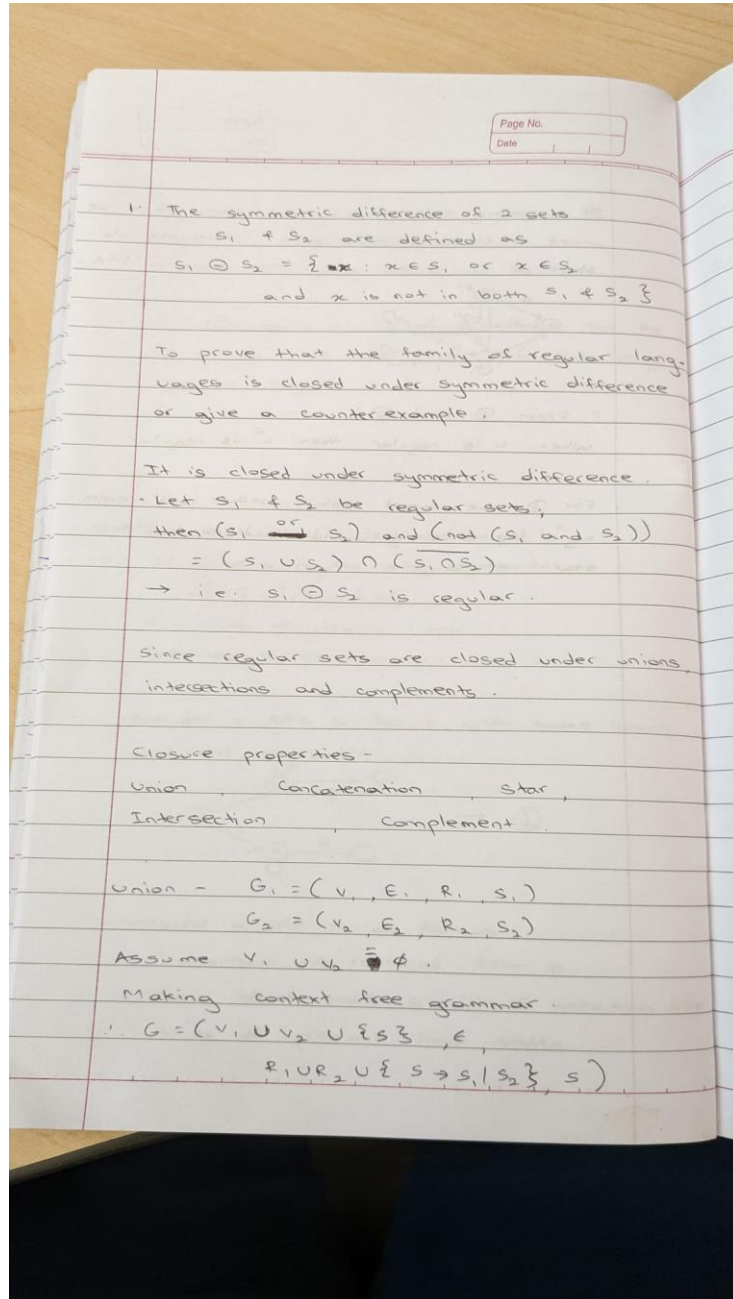 Page No.
Date
1. The symmetric difference of 2 sets
S₁ & S₂ are defined as
S₁ ⊖ S₂ = { x : x ∈ S₁ or x ∈ S₂
and x is not in both S₁ & S₂ }
To prove that the family of regular lang-
uages is closed under symmetric difference
or give a counter example.
It is closed under symmetric difference.
· Let S₁ & S₂ be regular sets,
then (S₁ or S₂) and (not (S₁ and S₂))
= (S₁ ∪ S₂) ∩ (S̅₁̅ ̅∩̅ ̅S̅₂̅)
→ i.e. S₁ ⊖ S₂ is regular.
Since regular sets are closed under unions,
intersections and complements.
Closure properties -
Union, Concatenation, Star,
Intersection, Complement.
Union - G₁ = (V₁, E₁, R₁, S₁)
G₂ = (V₂, E₂, R₂, S₂)
Assume V₁ ∪ V₂ = φ.
Making context free grammar.
∴ G = (V₁ ∪ V₂ ∪ {S}, ε,
R₁ ∪ R₂ ∪ { S → S₁ | S₂}, S)